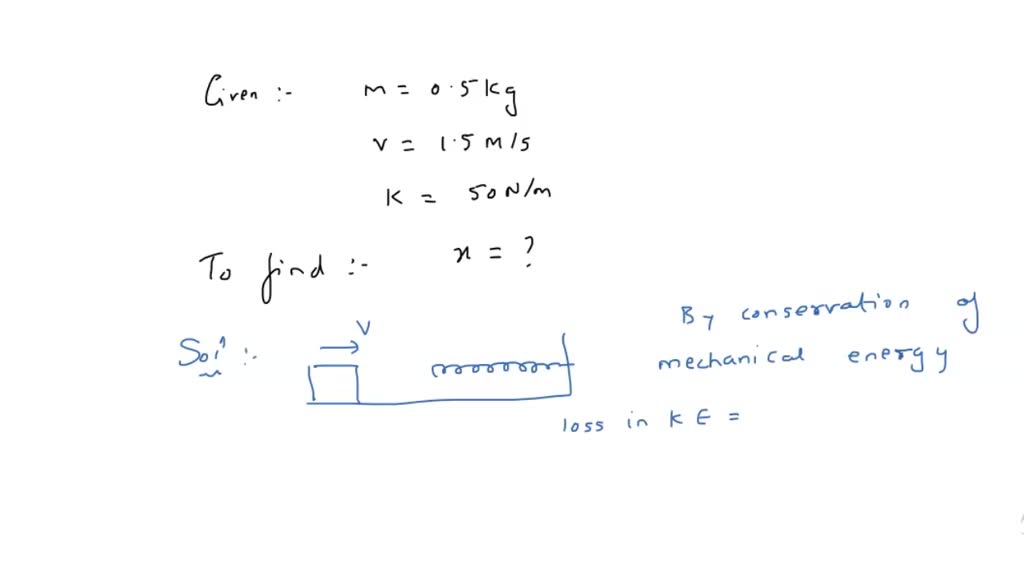 Given :- m = 0.5 kg
v = 1.5 m/s
K = 50 N/m
To find :- x = ?
Sol^n :-
V
By conservation of
mechanical energy
loss in KE =